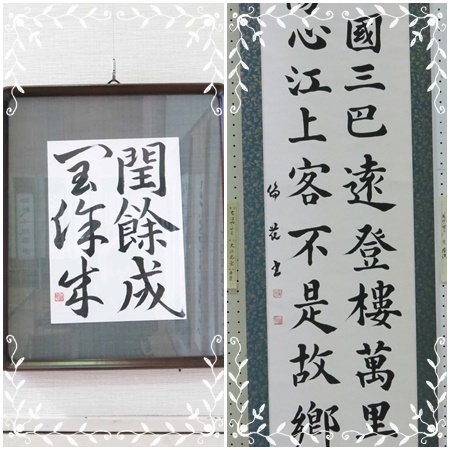 閏餘成
閏餘成
國三巴遠登樓萬里
心江上客不是故鄉